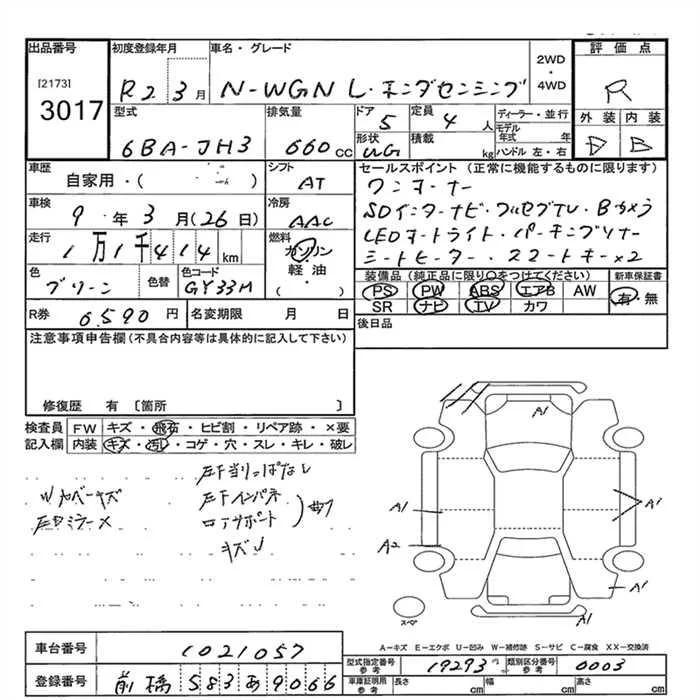 出品番号 初度登録年月 車名・グレード 2WD・4WD 評価点
[2173]
3017
R2 3月 N-WGN L・ホンダセンシング R
型式 排気量 ドア 定員 ディーラー・並行 外装 内装
6BA-JH3 660cc 5 4人 モデル年式 年 D B
形状 積載 ハンドル 左・右
WG kg
車歴 シフト セールスポイント (正常に機能するものに限ります)
自家用・( ) AT ワンオーナー
車検 冷房 SDインターナビ・フルセグTV・Bカメラ
9年3月(26日) AAC LEDオートライト・パーキングソナー
走行 燃料 シートヒーター・スマートキー×2
1万1千414km ガソリン・軽油・( )
色 色替 色コード 装備品 (純正品に限り○をつけてください) 新車保証書
グリーン GY33M PS PW ABS エアB AW 有・無
SR ナビ TV カワ
R券 6590円 名変期限 月 日 後日品
注意事項申告欄(不具合内容等は具体的に記入して下さい)
修復歴 有 〔箇所 〕
検査員記入欄 FW キズ・飛石・ヒビ割・リペア跡・×要
内装 キズ・汚レ・コゲ・穴・スレ・キレ・破レ
左F当りっぱなし
Wカバーキズ 左Fインパネ
左Dミラー× ロアサポート 曲
キズ
A1
A1 A1
A2
A1
スペア
A1
A-キズ E-エクボ U-凹み W-補修跡 S-サビ C-腐食 XX-交換済
車台番号 1021057
型式指定番号 参考 19293 類別区分番号 参考 0003
登録番号 前橋 583 あ 9066
車庫証明用 参考 長さ cm 幅 cm 高さ cm